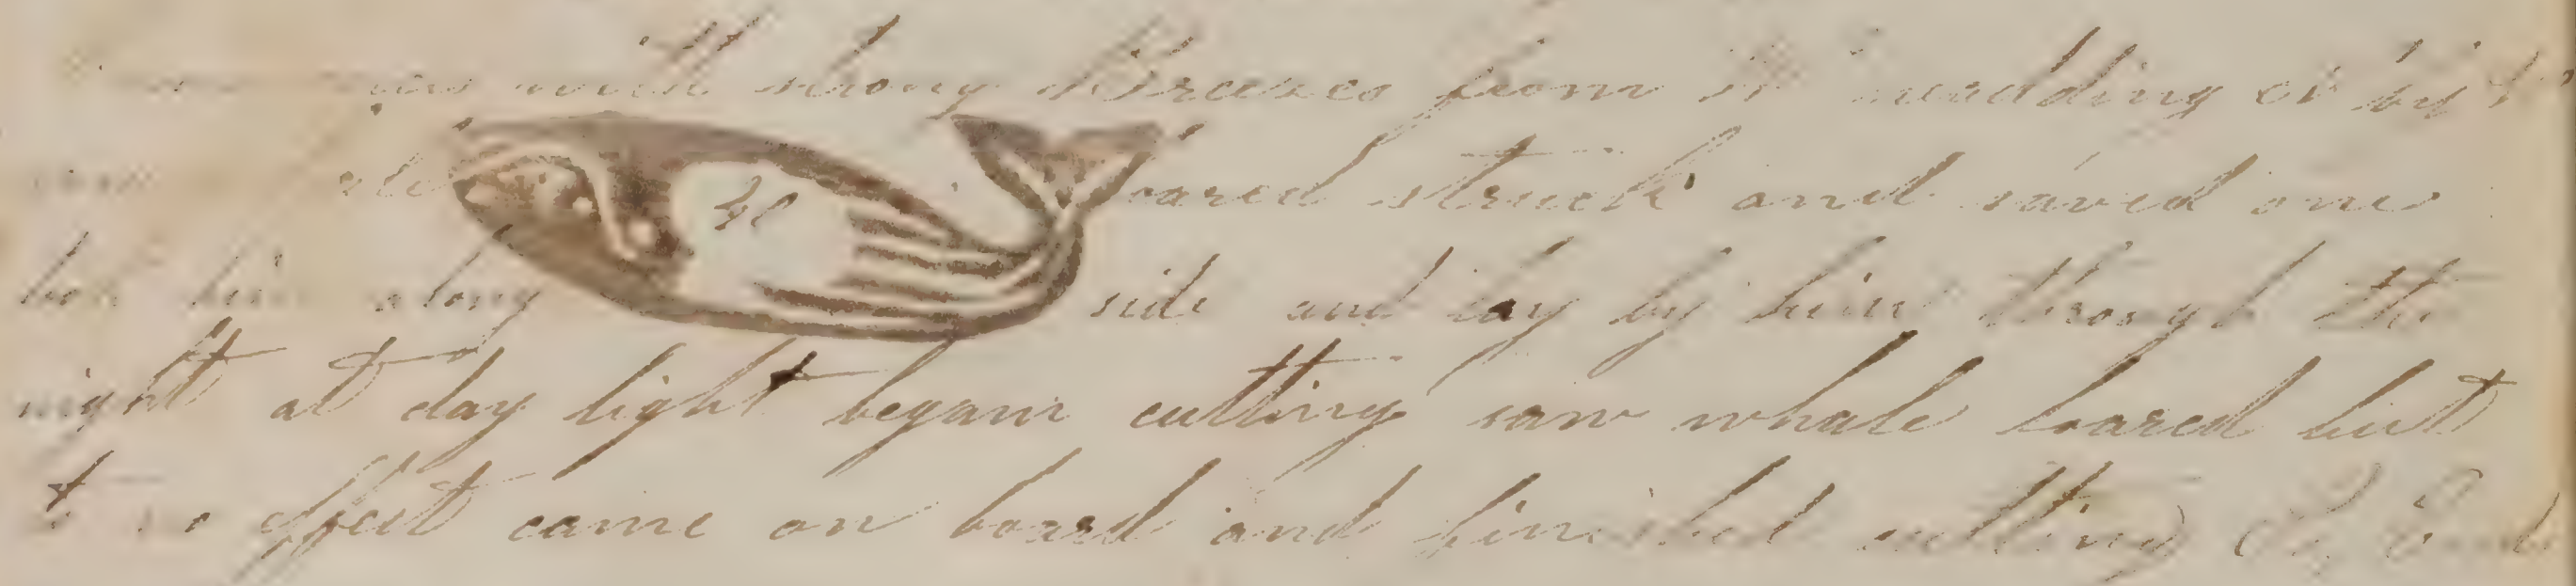 with strong Breezes from headding
40 loared struck and saved one
him along side and lay by him through the
night at day light began cutting saw whale loared but
effect came on board and finished cutting